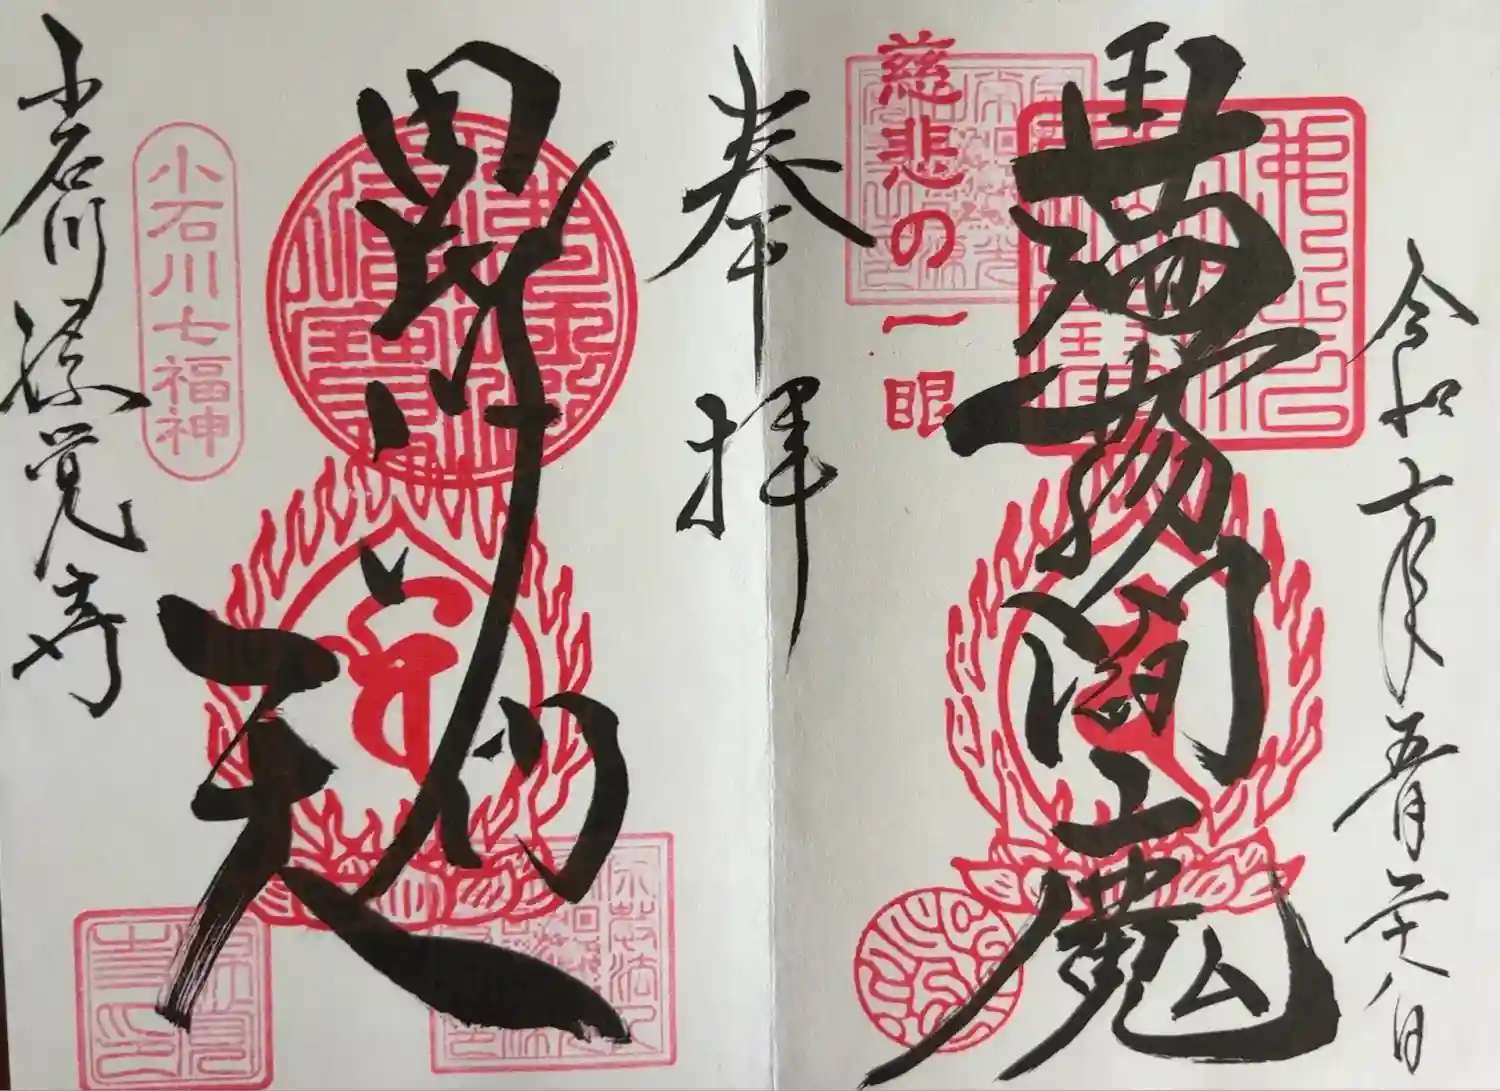 令和七年五月二十八日
蒟蒻閻魔
慈悲の一眼
奉拝
毘沙門天
小石川七福神
小石川源覚寺